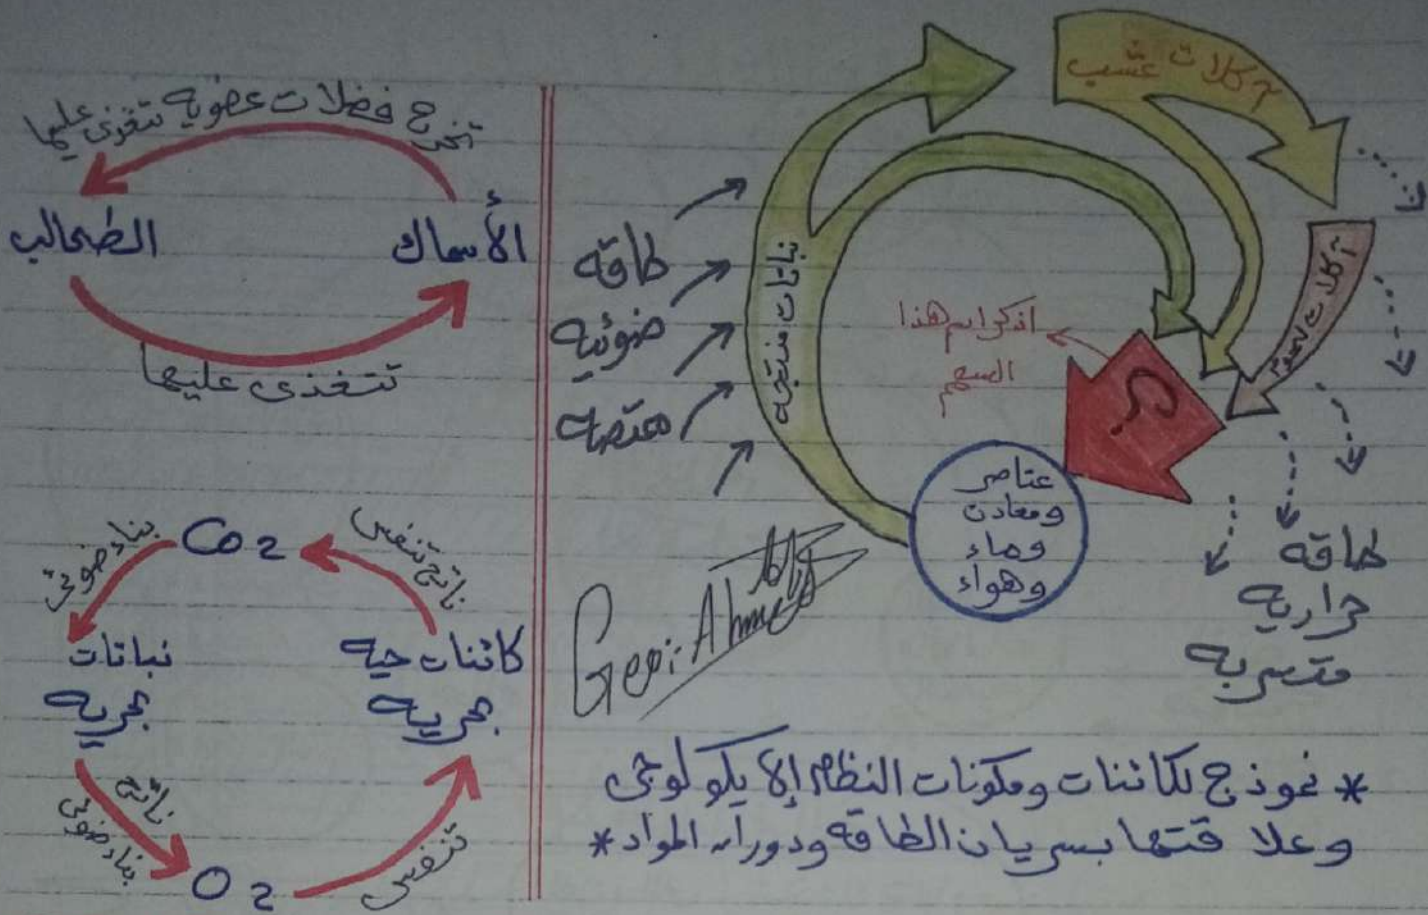 تخرج فضلات عضوية تتغذى عليها
الأسماك
الطحالب
تتغذى عليها
Co2
ناتج تنفس
بناء ضوئي
كائنات حيه
بحريه
نباتات
بحريه
ناتج
بناء ضوئي
تنفس
O2
آكلات عشب
آكلات لحوم
نباتات منتجه
طاقه
ضوئيه
ممتصه
اذكر اسم هذا
السهم
؟
عناصر
ومعادن
وماء
وهواء
طاقه
حراريه
متسربه
Geoi-Ahmed
* نموذج لكائنات ومكونات النظام الإيكولوجى
وعلاقتها بسريان الطاقه ودوران المواد *